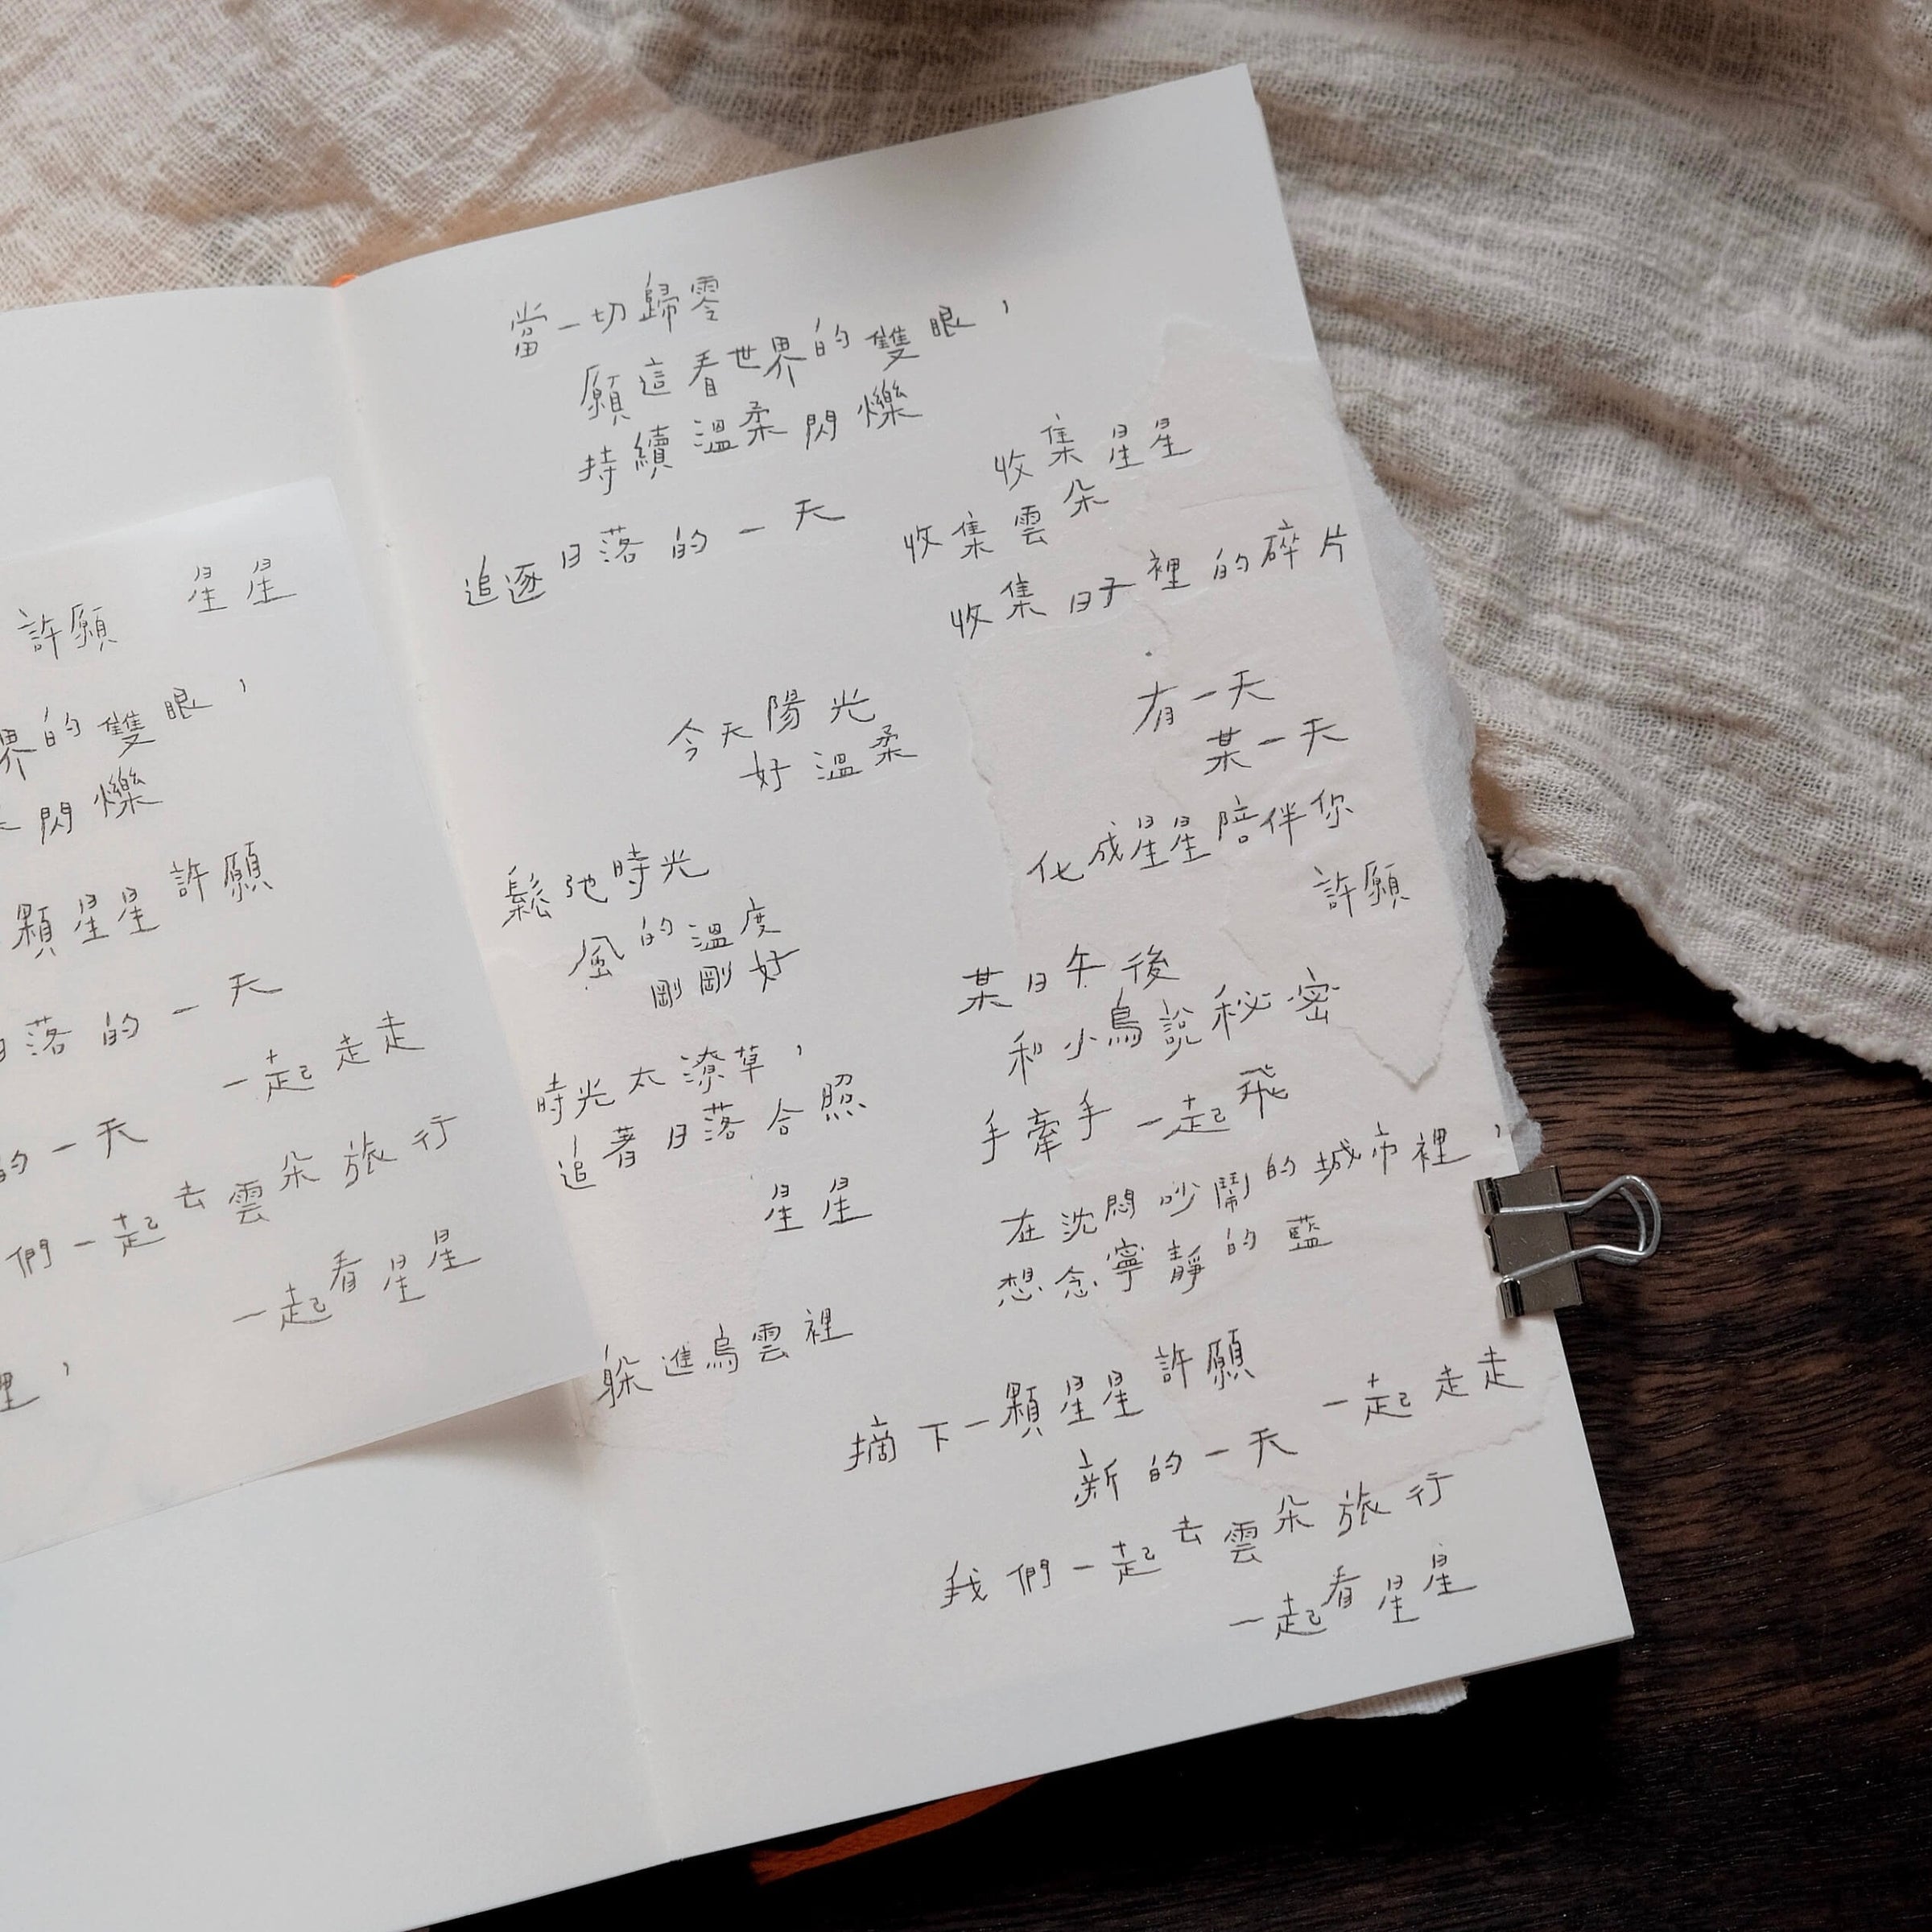 許願 星星
界的雙眼，
閃爍
顆星星許願
日落的一天
一起走走
的一天
們一起去雲朵旅行
一起看星星
裡，
當一切歸零
願這看世界的雙眼，
持續溫柔閃爍
追逐日落的一天
收集星星
收集雲朵
收集日子裡的碎片
今天陽光
好溫柔
有一天
某一天
化成星星陪伴你
許願
鬆弛時光
風的溫度
剛剛好
某日午後
和小鳥說秘密
手牽手一起飛
時光太潦草，
追著日落合照
星星
在沈悶吵鬧的城市裡，
想念寧靜的藍
躲進烏雲裡
摘下一顆星星許願
一起走走
新的一天
我們一起去雲朵旅行
一起看星星